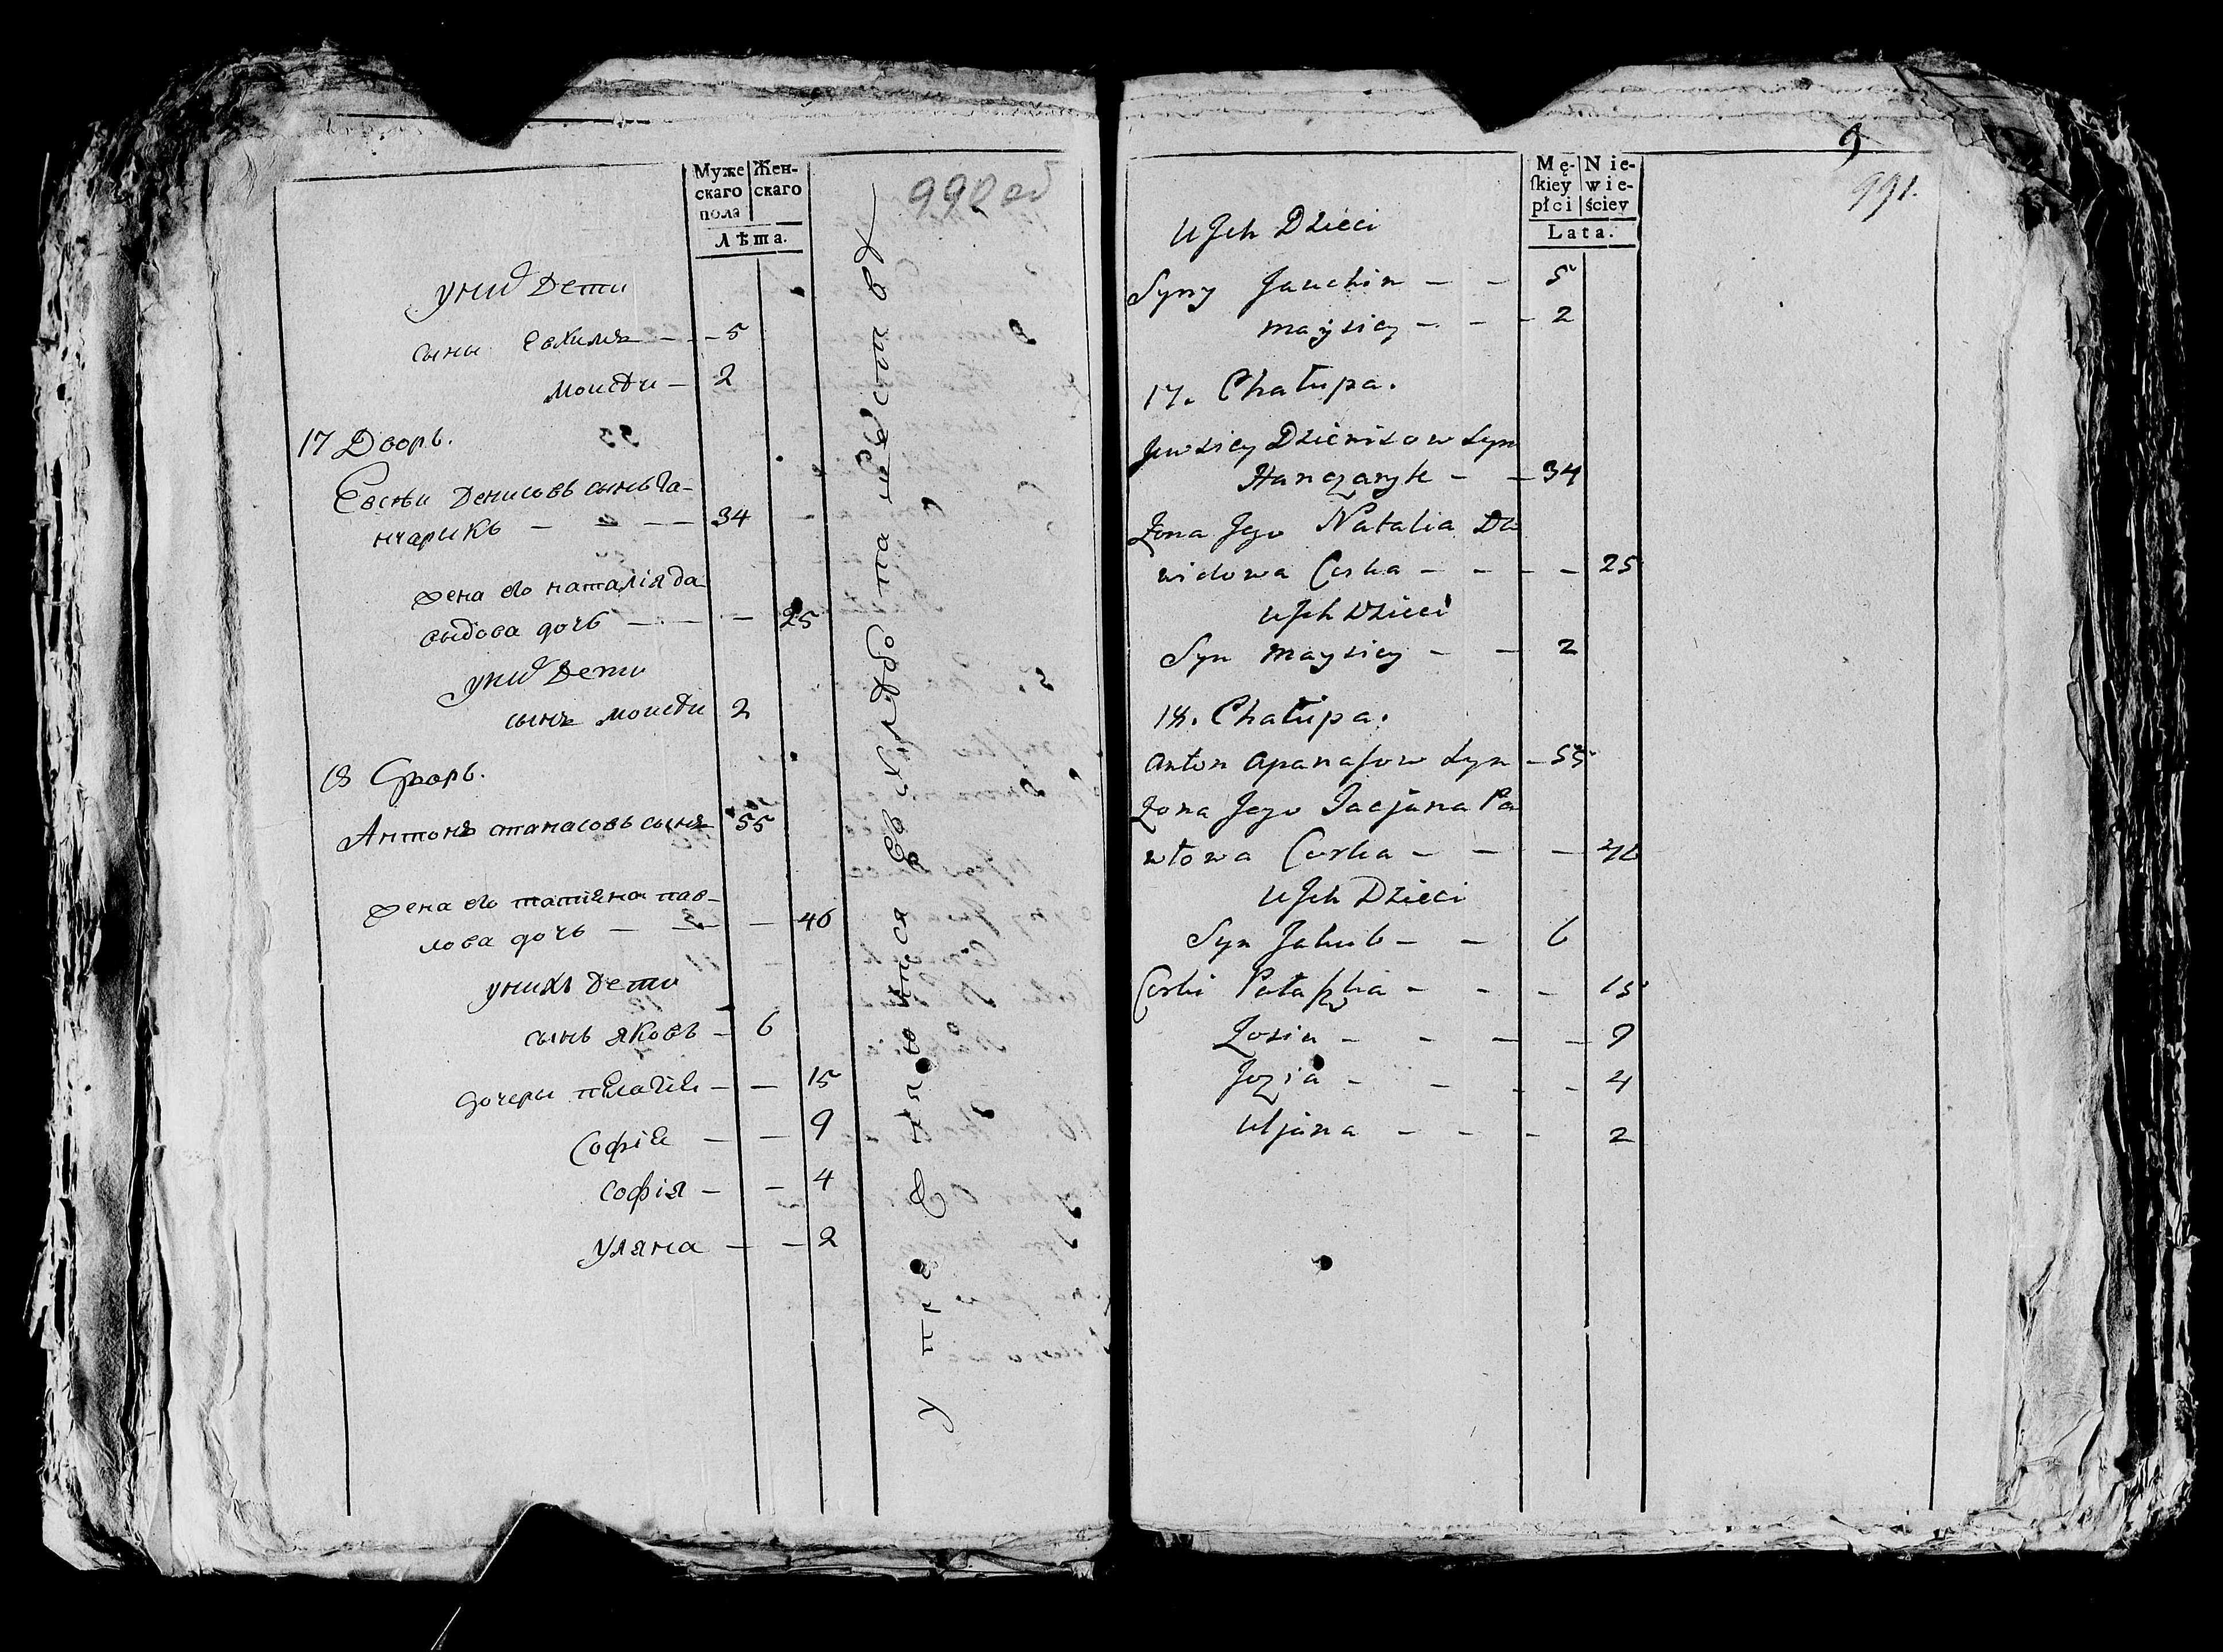 990 об
Муже Жен-
скаго скаго
пола
Лѣта.
у них Дети
сыны Евхимъ — — 5
Моисѣи — 2
17 Дворъ.
Евсѣи Денисовъ сынъ Га-
нчарикъ — — — 34
Жена его наталія да-
выдова дочь — — — 25
у них Дети
сынъ Моисѣи 2
18 Дворъ.
Антонъ апанасовъ сынъ 55
Жена его татіяна пав-
лова дочь — — — 46
у нихъ Дети
сынъ яковъ — 6
дочери пелагия — — 15
Софія — — 9
софія — — 4
уляна — — 2
9
991.
Mę- Nie-
ſkiey wie-
płci ściey
Lata.
U Jch Dzieci
Syny Jauchim — — 5
Maysiey — — — 2
17. Chałupa.
Jewsiey Dzienisow Syn
Hanczaryk — — 34
Żona Jego Natalia Da
widowa Corka — — — — 25
U Jch Dzieci
Syn Maysiey — — 2
18. Chałupa.
Anton Apanaſow Syn — 55
Żona Jego Tacjana Pa
włowa Corka — — — 46
U Jch Dzieci
Syn Jakub — — 6
Corki — — — 15
Zosia — — — — 9
Jozia — — — — 4
Uljana — — — 2